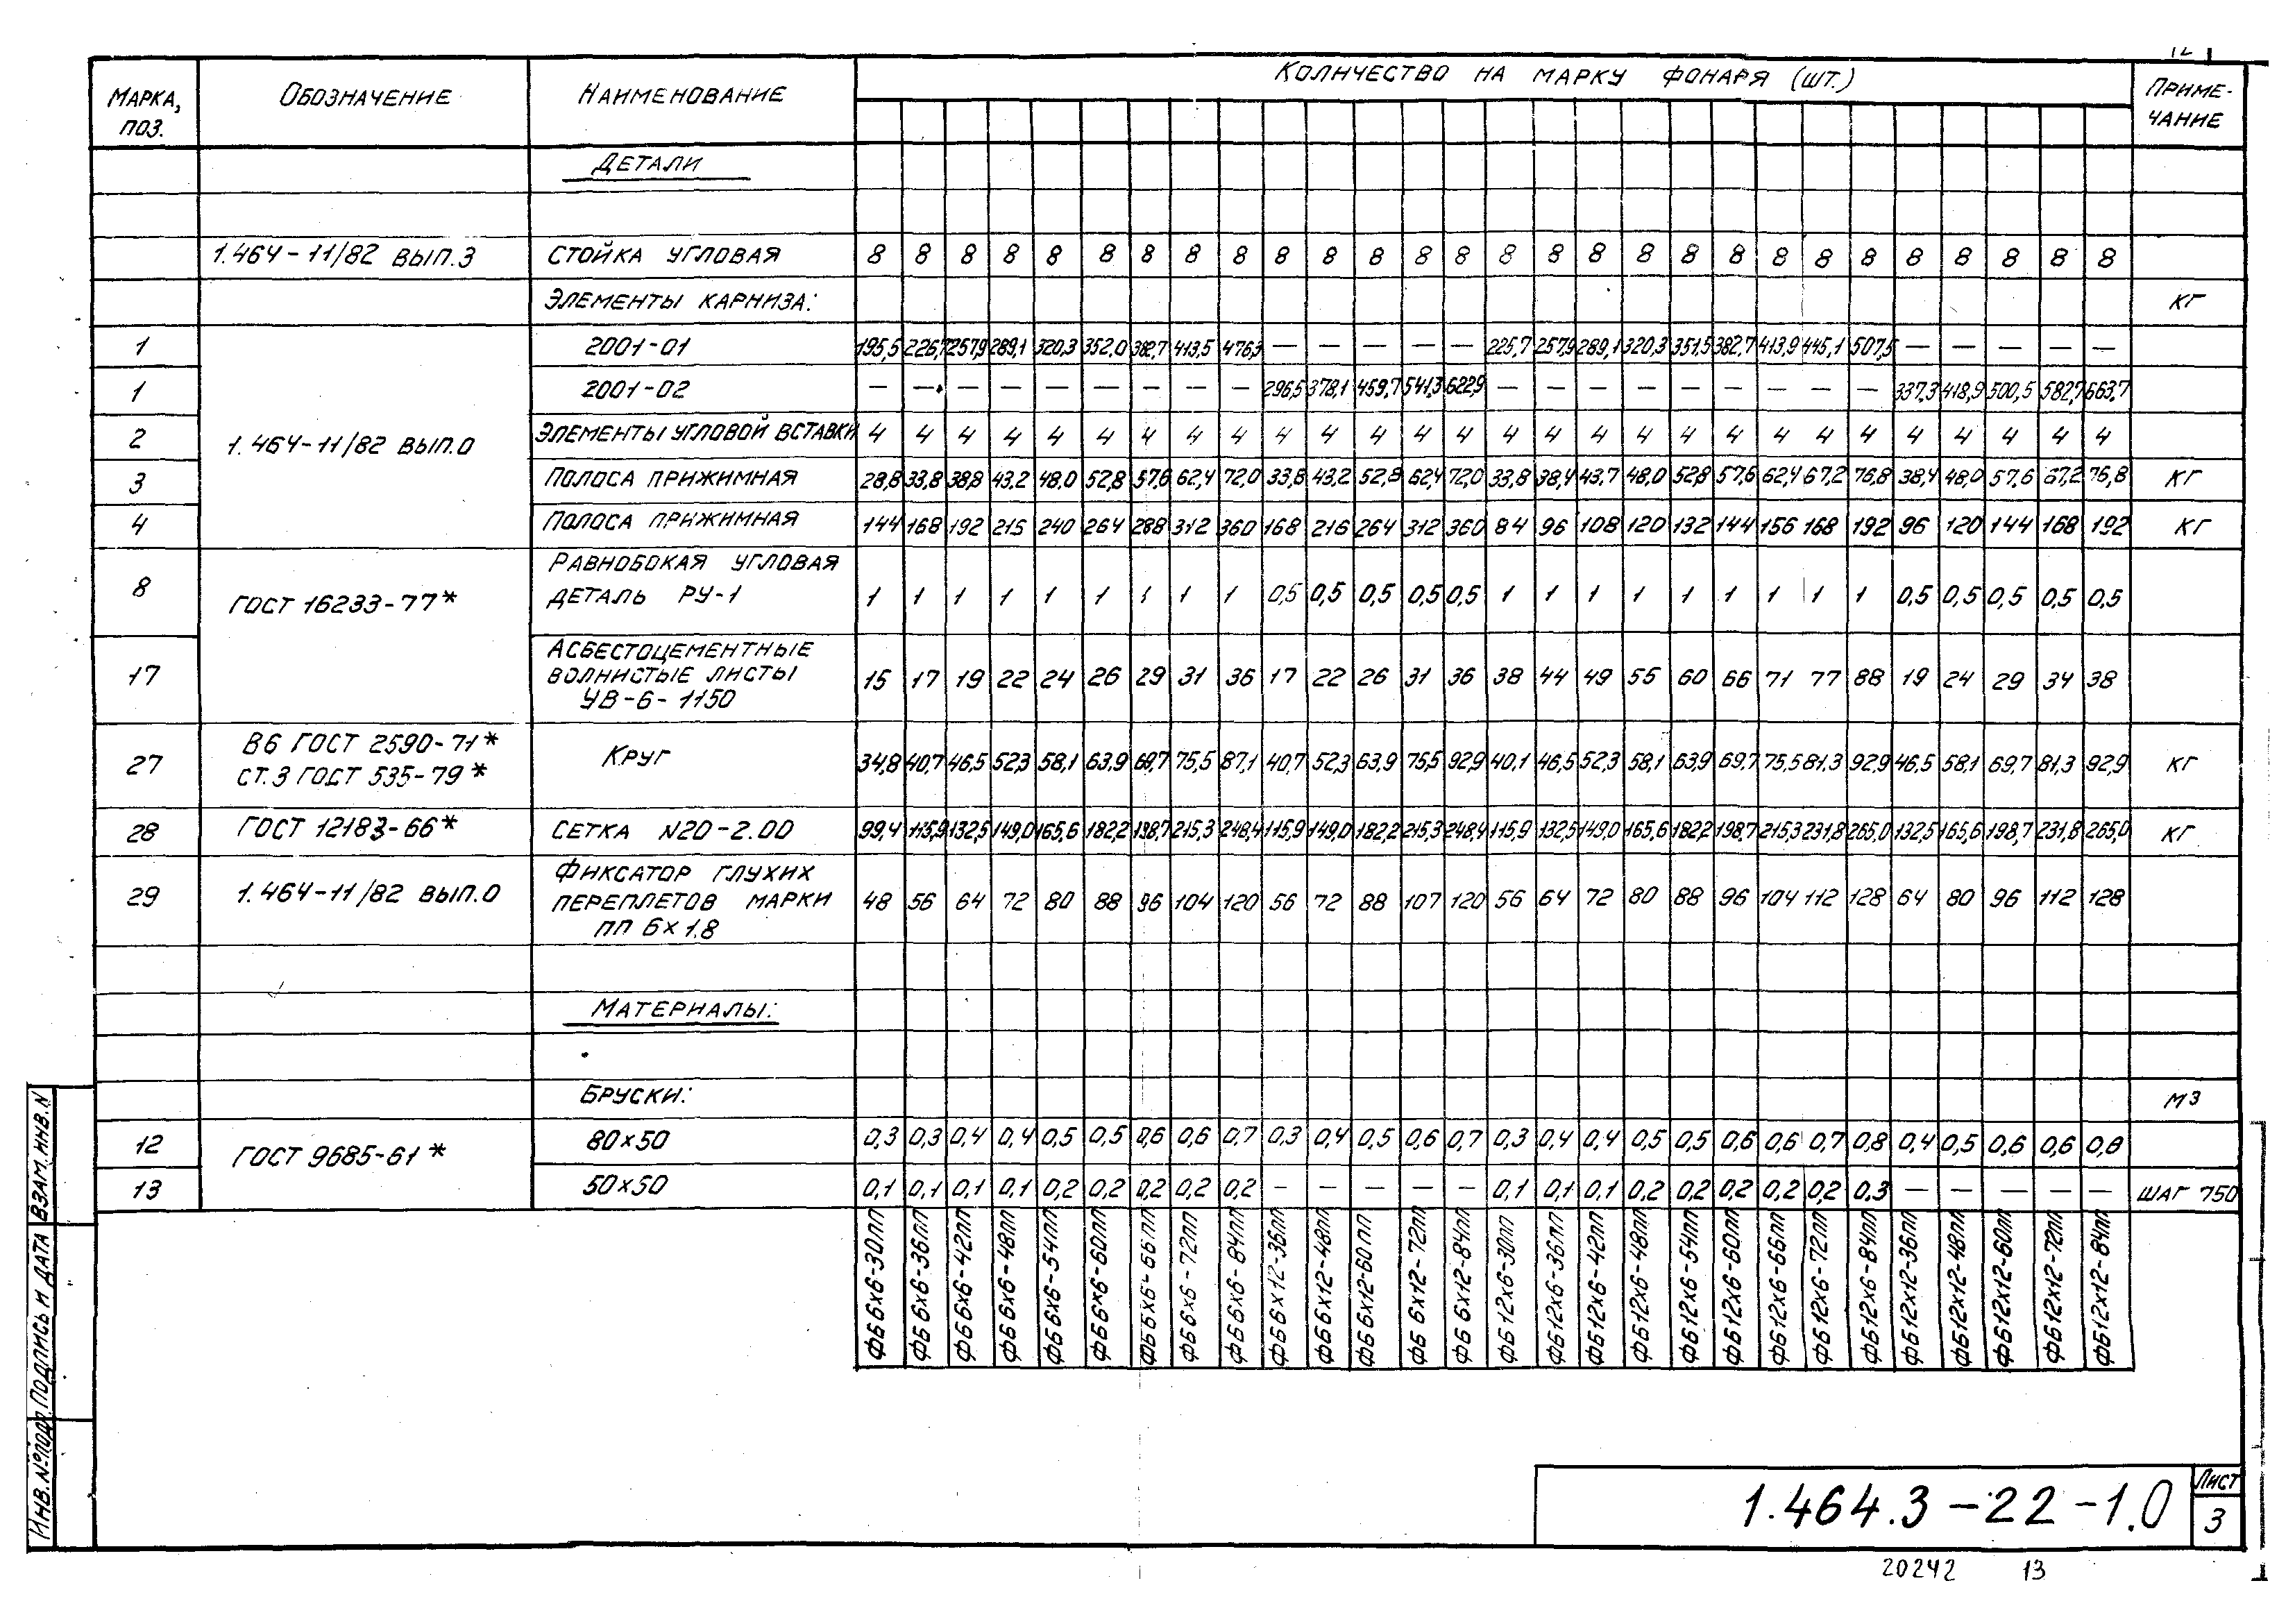 12
МАРКА, ПОЗ. ОБОЗНАЧЕНИЕ НАИМЕНОВАНИЕ КОЛИЧЕСТВО НА МАРКУ ФОНАРЯ (ШТ.) ПРИМЕ-ЧАНИЕ
ДЕТАЛИ
1.464-11/82 ВЫП.3 СТОЙКА УГЛОВАЯ 8 8 8 8 8 8 8 8 8 8 8 8 8 8 8 8 8 8 8 8 8 8 8 8 8 8 8 8
ЭЛЕМЕНТЫ КАРНИЗА: КГ
1 2001-01 195,5 226,7 257,9 289,1 320,3 352,0 382,7 413,5 476,3 — — — — — 225,7 257,9 289,1 320,3 351,5 382,7 413,9 445,1 507,5 — — — — —
1 2001-02 — — — — — — — — — 296,5 378,1 459,7 541,3 622,9 — — — — — — — — — 337,3 418,9 500,5 582,7 663,7
2 ЭЛЕМЕНТЫ УГЛОВОЙ ВСТАВКИ 4 4 4 4 4 4 4 4 4 4 4 4 4 4 4 4 4 4 4 4 4 4 4 4 4 4 4 4
1.464-11/82 ВЫП.0
3 ПОЛОСА ПРИЖИМНАЯ 28,8 33,8 38,8 43,2 48,0 52,8 57,6 62,4 72,0 33,8 43,2 52,8 62,4 72,0 33,8 38,4 43,7 48,0 52,8 57,6 62,4 67,2 76,8 38,4 48,0 57,6 67,2 76,8 КГ
4 ПОЛОСА ПРИЖИМНАЯ 144 168 192 215 240 264 288 312 360 168 216 264 312 360 84 96 108 120 132 144 156 168 192 96 120 144 168 192 КГ
8 ГОСТ 16233-77* РАВНОБОКАЯ УГЛОВАЯ
ДЕТАЛЬ РУ-1 1 1 1 1 1 1 1 1 1 0,5 0,5 0,5 0,5 0,5 1 1 1 1 1 1 1 1 1 0,5 0,5 0,5 0,5 0,5
АСБЕСТОЦЕМЕНТНЫЕ
17 ВОЛНИСТЫЕ ЛИСТЫ 15 17 19 22 24 26 29 31 36 17 22 26 31 36 38 44 49 55 60 66 71 77 88 19 24 29 34 38
УВ-6-1150
В6 ГОСТ 2590-71*
27 СТ.3 ГОСТ 535-79* КРУГ 34,8 40,7 46,5 52,3 58,1 63,9 69,7 75,5 87,1 40,7 52,3 63,9 75,5 92,9 40,1 46,5 52,3 58,1 63,9 69,7 75,5 81,3 92,9 46,5 58,1 69,7 81,3 92,9 КГ
28 ГОСТ 12183-66* СЕТКА N20-2.00 99,4 115,9 132,5 149,0 165,6 182,2 198,7 215,3 248,4 115,9 149,0 182,2 215,3 248,4 115,9 132,5 149,0 165,6 182,2 198,7 215,3 231,8 265,0 132,5 165,6 198,7 231,8 265,0 КГ
ФИКСАТОР ГЛУХИХ
29 1.464-11/82 ВЫП.0 ПЕРЕПЛЕТОВ МАРКИ 48 56 64 72 80 88 96 104 120 56 72 88 107 120 56 64 72 80 88 96 104 112 128 64 80 96 112 128
ПП 6×1.8
МАТЕРИАЛЫ:
БРУСКИ: М3
12 80×50 0,3 0,3 0,4 0,4 0,5 0,5 0,6 0,6 0,7 0,3 0,4 0,5 0,6 0,7 0,3 0,4 0,4 0,5 0,5 0,6 0,6 0,7 0,8 0,4 0,5 0,6 0,6 0,8
ГОСТ 9685-61*
13 50×50 0,1 0,1 0,1 0,1 0,2 0,2 0,2 0,2 0,2 — — — — — 0,1 0,1 0,1 0,2 0,2 0,2 0,2 0,2 0,3 — — — — — ШАГ 750
ФБ6×6-30ПП
ФБ6×6-36ПП
ФБ6×6-42ПП
ФБ6×6-48ПП
ФБ6×6-54ПП
ФБ6×6-60ПП
ФБ6×6-66ПП
ФБ6×6-72ПП
ФБ6×6-84ПП
ФБ6×12-36ПП
ФБ6×12-48ПП
ФБ6×12-60ПП
ФБ6×12-72ПП
ФБ6×12-84ПП
ФБ12×6-30ПП
ФБ12×6-36ПП
ФБ12×6-42ПП
ФБ12×6-48ПП
ФБ12×6-54ПП
ФБ12×6-60ПП
ФБ12×6-66ПП
ФБ12×6-72ПП
ФБ12×6-84ПП
ФБ12×12-36ПП
ФБ12×12-48ПП
ФБ12×12-60ПП
ФБ12×12-72ПП
ФБ12×12-84ПП
ИНВ.№ПОДЛ. ПОДПИСЬ И ДАТА ВЗАМ.ИНВ.N
1.464.3-22-1.0
ЛИСТ
3
20242 13